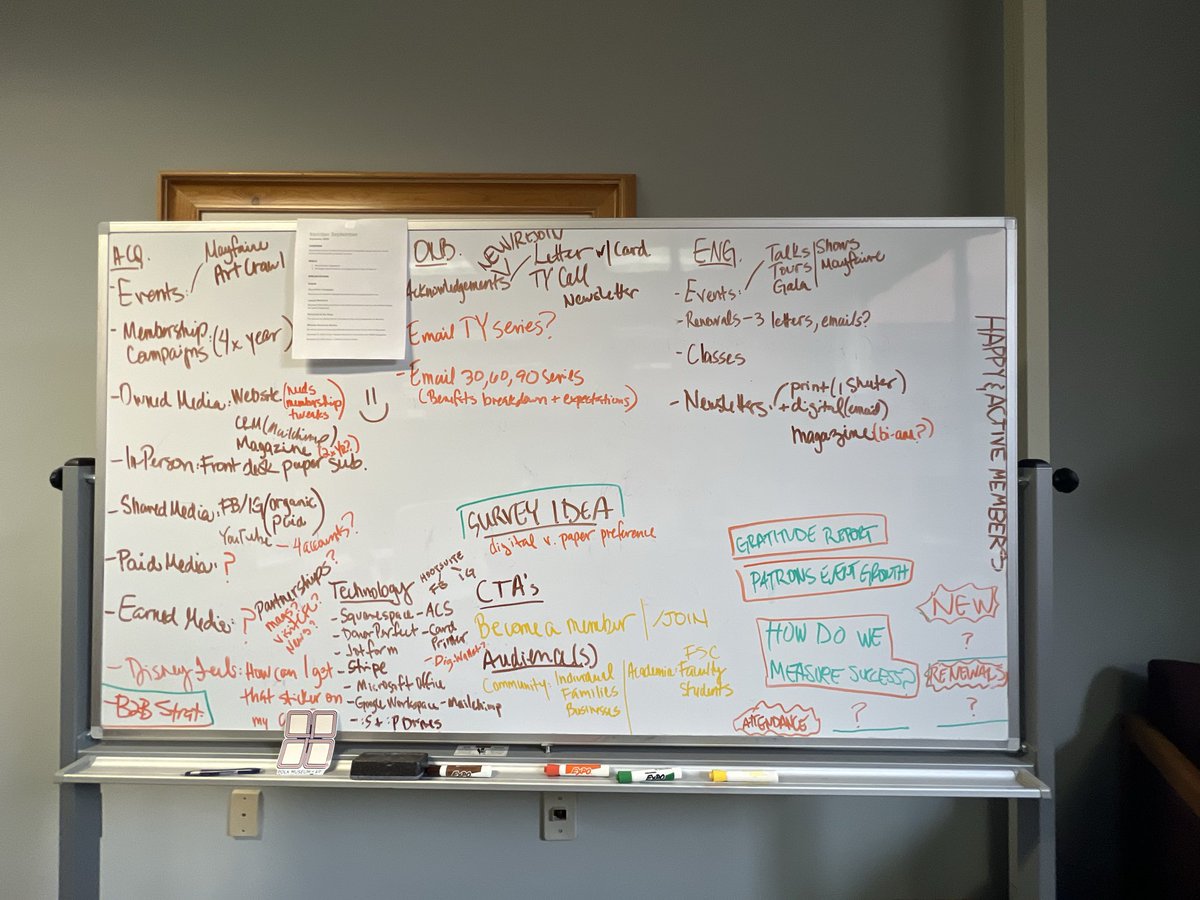 ACQ.
- Events:
Mayfaire
Art Crawl
- Membership: (4x year)
Campaigns
- Owned Media: Website (needs
membership
tweaks)
CRM (Mailchimp)
Magazine
- In-Person: Front desk paper sub.
- Shared Media: FB/IG (organic
paid)
YouTube - 4 accounts?
- Paid Media: ?
- Earned Media: ?
Partnerships?
mags?
News?
- Disney Feels: How can I get
that sticker on
my
B2B Strat.
ONB.
NEW/REJOIN
Acknowledgements
Letter w/Card
TY Call
Newsletter
Email TY series?
- Email 30, 60, 90 series
(Benefits breakdown + expectations)
ENG.
- Events:
Talks
Tours
Gala
Shows
Mayfaire
- Renewals - 3 letters, emails?
- Classes
- Newsletters:
print
+ digital (email)
magazine (bi-ann?)
HAPPY & ACTIVE MEMBERS
SURVEY IDEA
digital v. paper preference
Technology
- Squarespace
- DonorPerfect
- Jotform
- Stripe
- Microsoft Office
- Google Workspace
- ACS
- Card
Printer
- Dig. Wallet?
- Mailchimp
HOOTSUITE
FB IG
CTA's
Become a member / JOIN
Audience(s)
Community: Individual
Families
Businesses
Academia:
FSC
Faculty
Students
GRATITUDE REPORT
PATRONS EVENT GROWTH
HOW DO WE
MEASURE SUCCESS?
ATTENDANCE
?
NEW
?
RENEWALS
?
EXPO
EXPO
EXPO